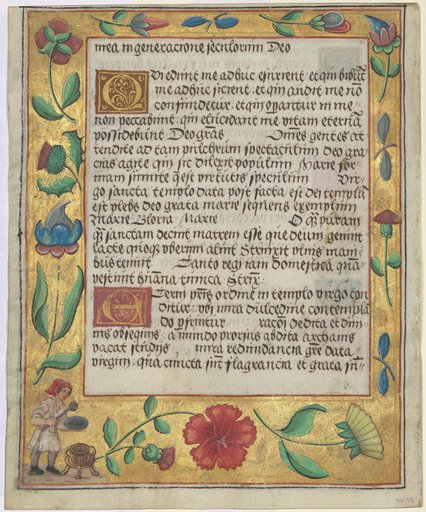 mea in generacione seculorum Deo
Qui edunt me adhuc esurient et qui bibūt
me adhuc sicient et qui audit me nō
confundetur et qui operantur in me
non peccabunt qui elucidant me vitam eternā
possidebunt Deo gras Omes gentes at
tendite ad tam pulchrum spectaculum deo gra
cias agite qui sic dilexit populum Marie for
mam sumite q est virtutis speculum Vir
go sancta templo data post facta est dei templū
est plebs deo grata marie sequens exemplum
Marie Gloria Marie O q puram
q sanctam decuit matrem esse que deum genuit
lacte quoq uberum aluit Strinxit ulnis mani
bus tenuit Tanto regi tam domestica quā
vestiuit humana tunica Strix
Eterni pris ordine in templo virgo con
ditur ubi mira dulcedine contempla
do perfruitur racoi dedita et diui
nis obsequiis a mundo prorsus abdita
vacat studiis mira redundancia gre data
virgini qua cuncta sunt flagrancia et grata